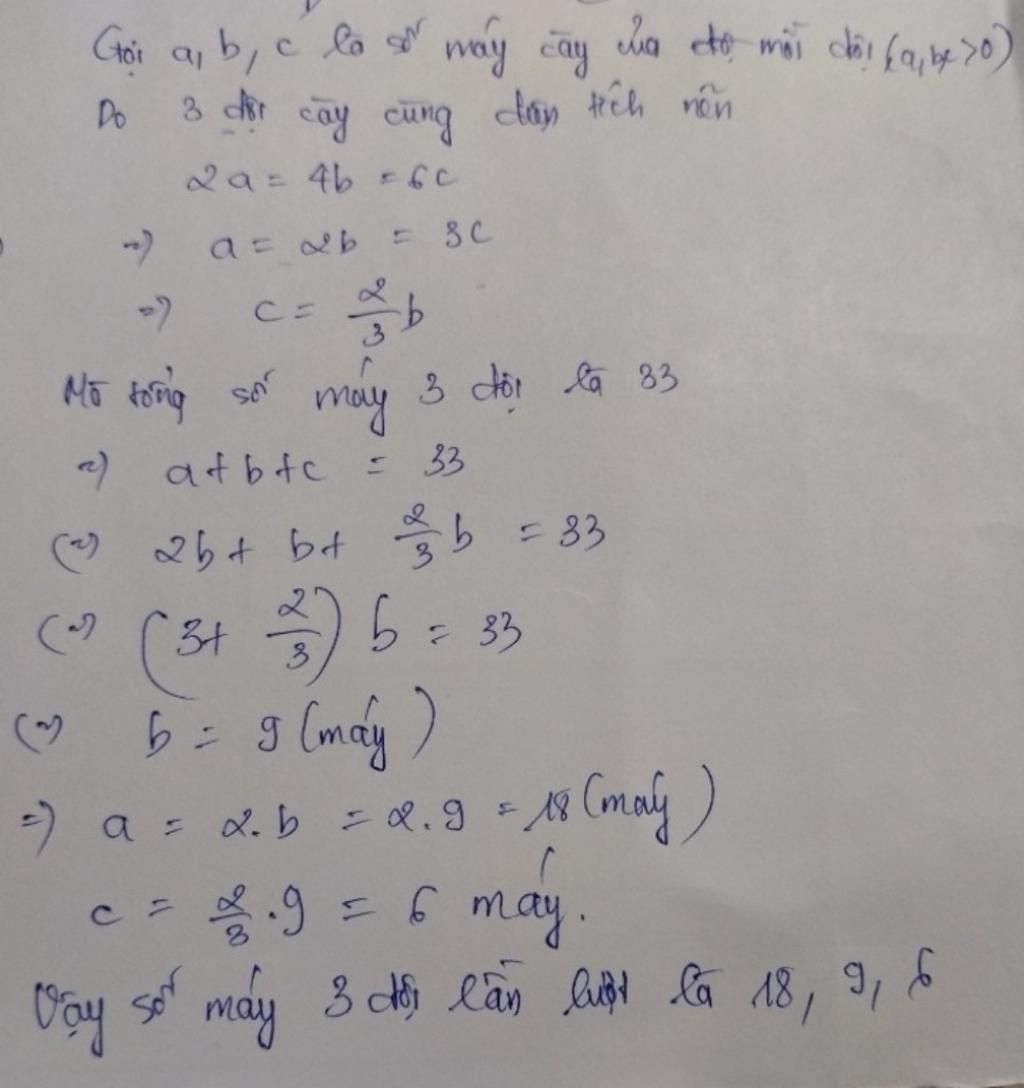 Gọi a, b, c là số máy cày của mỗi đội (a, b, c >0)
Do 3 đội cày cùng diện tích nên
2a = 4b = 6c
=> a = 2b = 3c
=> c = 2/3 b
Mà tổng số máy 3 đội là 33
=> a+b+c = 33
(=) 2b + b + 2/3 b = 33
(=) (3+ 2/3) b = 33
(=) b = 9 (máy)
=> a = 2.b = 2.9 = 18 (máy)
c = 2/3 .9 = 6 máy.
Vậy số máy 3 đội lần lượt là 18, 9, 6